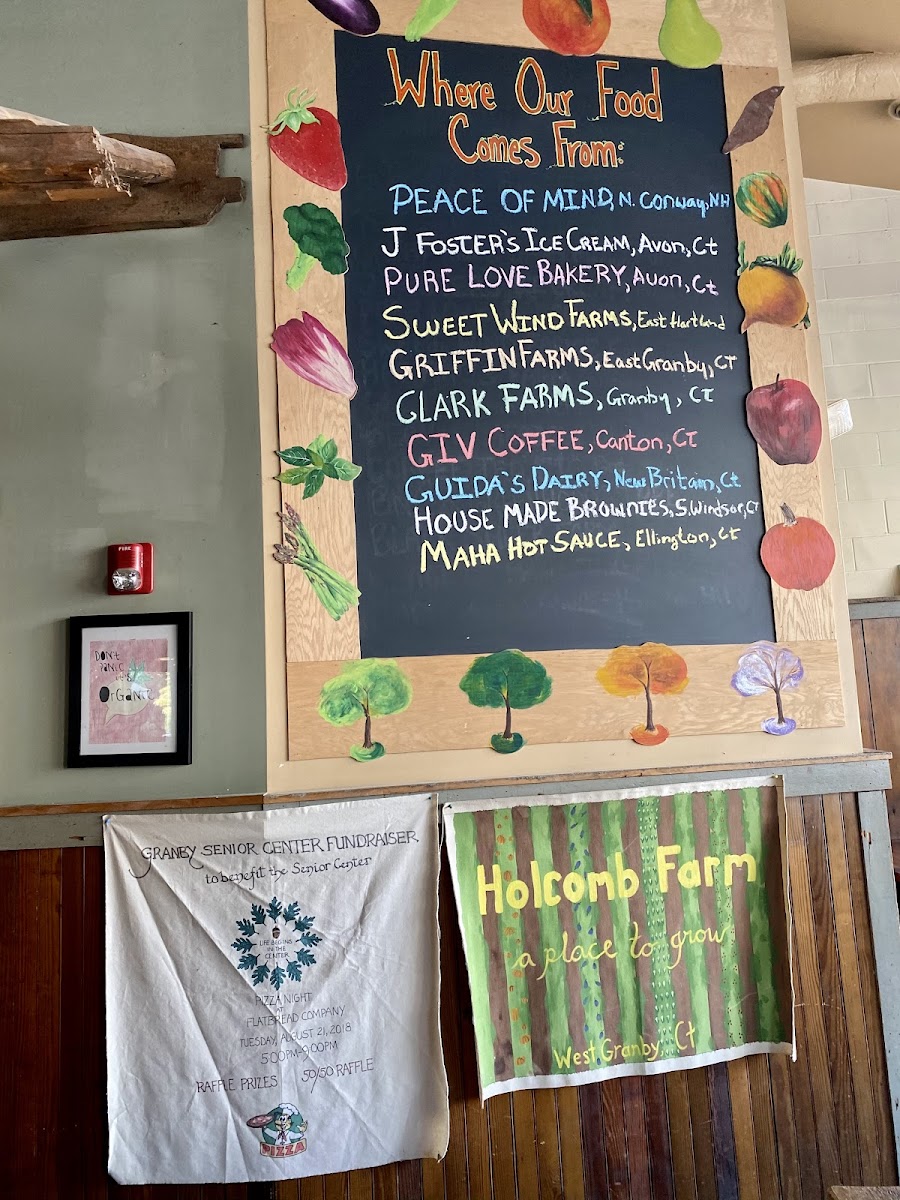 Where Our Food
Comes From:
PEACE OF MIND, N. Conway, NH
J FOSTER'S ICE CREAM, Avon, Ct
PURE LOVE BAKERY, Avon, Ct
SWEET WIND FARMS, East Hartland
GRIFFIN FARMS, East Granby, CT
CLARK FARMS, Granby, CT
GIV COFFEE, Canton, CT
GUIDA'S DAIRY, New Britain, Ct
HOUSE MADE BROWNIES, S. Windsor, CT
MAHA HOT SAUCE, Ellington, Ct
FIRE
DON't
PANIC
it's
OrGanic
GRANBY SENIOR CENTER FUNDRAISER
to benefit the Senior Center
LIFE BEGINS
IN THE
CENTER
PIZZA NIGHT
AT
FLATBREAD COMPANY
TUESDAY, AUGUST 21, 2018
5:00PM-9:00PM
RAFFLE PRIZES 50/50 RAFFLE
PIZZA
Holcomb Farm
a place to grow
West Granby, Ct